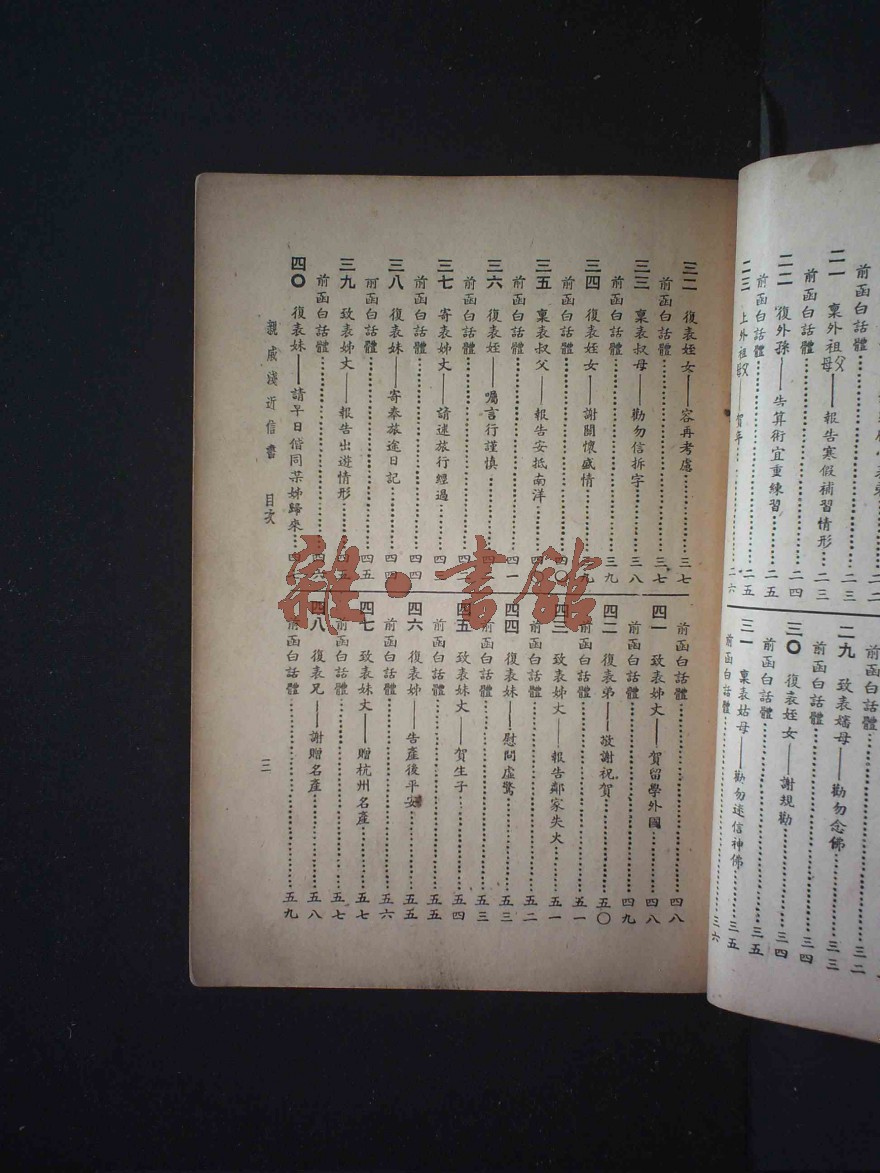 前函白話體……二三
二一 稟外祖父母——報告寒假補習情形……二三
前函白話體……二四
二二 復外孫——告算術宜重練習……二五
前函白話體……二五
二三 上外祖父母——賀年……二六
前函白話體……三二
二九 致表嬸母——勸勿念佛……三三
前函白話體……三四
三〇 復表姪女——謝規勸……三四
前函白話體……三五
三一 稟表姑母——勸勿迷信神佛……三五
前函白話體……三六
三二 復表姪女——容再考慮……三七
前函白話體……三七
三三 稟表叔母——勸勿信拆字……三八
前函白話體……三九
三四 復表姪女——謝關懷盛情……九
前函白話體……四
三五 稟表叔父——報告安抵南洋……四
前函白話體……四一
三六 復表姪——囑言行謹慎……四
前函白話體……四
三七 寄表姊丈——請述旅行經過……四
前函白話體……四四
三八 復表妹——寄奉旅途日記……四四
前函白話體……四五
三九 致表姊丈——報告出遊情形……四五
前函白話體……四
四〇 復表妹——請早日偕同某姊歸來……四
前函白話體……四八
四一 致表姊丈——賀留學外國……四八
前函白話體……四九
四二 復表弟——敬謝祝賀……五〇
前函白話體……五一
四三 致表姊丈——報告鄰家失火……五一
前函白話體……五二
四四 復表妹——慰問虛驚……五三
前函白話體……五三
四五 致表妹丈——賀生子……五四
前函白話體……五五
四六 復表姊——告產後平安……五五
前函白話體……五六
四七 致表妹丈——贈杭州名產……五七
前函白話體……五七
四八 復表兄——謝贈名產……五八
前函白話體……五九
親戚淺近信書 目次
三
雜·書館